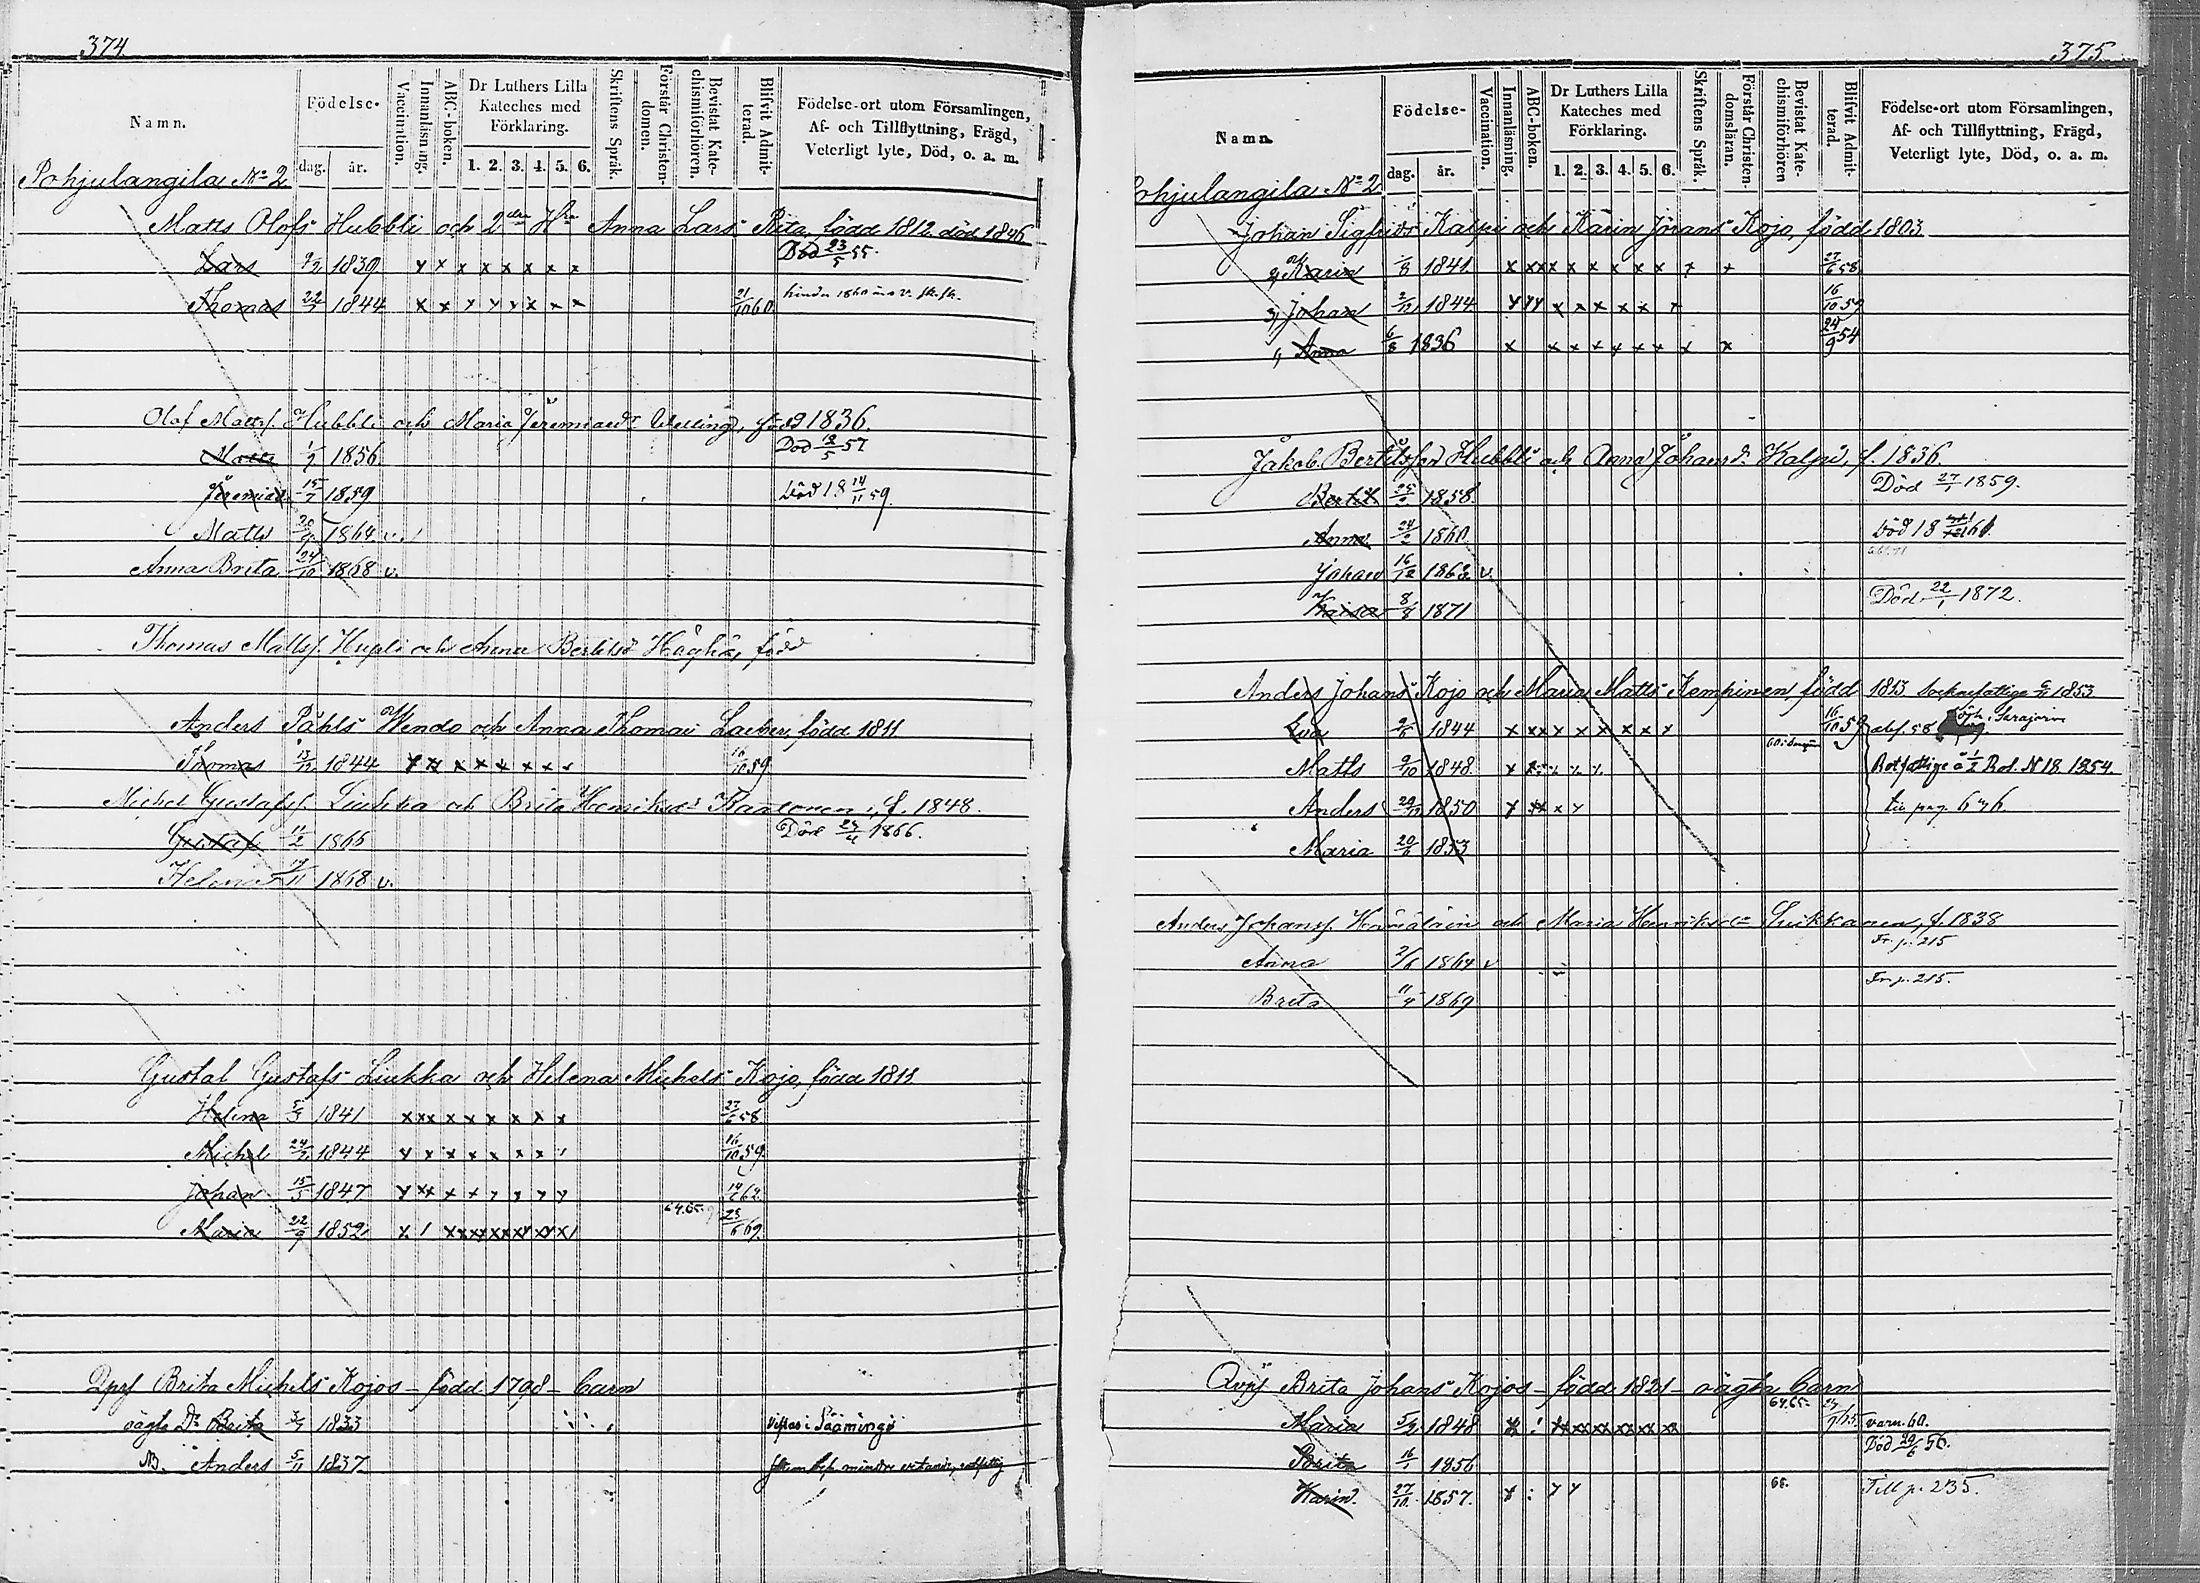 374
Namn.
Födelse-
dag.
år.
Vaccination.
Innanläsning.
ABC-boken.
Dr Luthers Lilla
Kateches med
Förklaring.
1. 2. 3. 4. 5. 6.
Skriftens Språk.
Förstår Christen-
domen.
Bevistat Kate-
chismiförhören.
Blifvit Admit-
terad.
Födelse-ort utom Församlingen,
Af- och Tillflyttning, Frägd,
Veterligt lyte, Död, o. a. m.
Pohjulangila No 2
Matts Olofs Hubbli och 2dra Hu Anna Lars Rita, född 1812 död 1846
Lars 1839 x x x x x x x x Död 23/5 55.
Thomas 22/7 1844 x x x x x x x x 21/10 60.
Olof Matts. Hubbli och Maria Jeremiasdr Welling, född 1836.
Matts 1/7 1856. Död 12/5 57
Jeremias 15/7 1859 Död 18 14/11 59.
Matts 1864 v.
Anna Brita 24/10 1868 v.
Thomas Matts. Hupli och Anna Bertilsd Häghä, född
Anders Påhls Wendo och Anna Thomas Laeber, född 1811
Thomas 13/12 1844 x x x x x x x x 16/10 59
Michel Gustafs. Liukka och Brita Henriksdr Kantonen, f. 1848.
Gustaf 11/2 1866 Död 1866.
Helena 1868 v.
Gustaf Gustafs Liukka och Helena Michels Kojo, född 1811
Helena 1841 x x x x x x x x x 27/6 58.
Michel 24/2 1844 x x x x x x x 16/10 59.
Johan 15/5 1847 x x x x x x x x 14/6 62.
Maria 22/9 1852 x ! x x x x x x x x 64.65. 69.
Brita Michels Kojos – född 1798 – barn
oägta Dr Brita 3/7 1833 vistas i Sääminge
NB. Anders 5/11 1837
375
Namn.
Födelse-
dag.
år.
Vaccination.
Innanläsning.
ABC-boken.
Dr Luthers Lilla
Kateches med
Förklaring.
1. 2. 3. 4. 5. 6.
Skriftens Språk.
Förstår Christen-
domsläran.
Bevistat Kate-
chismiförhören
Blifvit Admit-
terad.
Födelse-ort utom Församlingen,
Af- och Tillflyttning, Frägd,
Veterligt lyte, Död, o. a. m.
Pohjulangila No 2
Johan Sigfrids Kalpi och Karin Jörans Kojo, född 1803
2, Karin 1841 x x x x x x x x x x x 27/6 58
3, Johan 1844 x x x x x x x x x 16/10 59
1, Anna 6/8 1836 x x x x x x x x x 24/9 54
Jakob Bertilsson Hubbli och Anna Johansd. Kalpi, f. 1836.
Bertil 1858. Död 27/1 1859.
Anna 24/2 1860. Död 18
Johan 16/12 1862 v.
Kaisa 8/8 1871 Död 22/1 1872.
Anders Johans Kojo och Maria Matts Kempinen född 1813 sockenfattige 1853
Eva 1844 x x x x x x x x x 16/10 59
Matts 9/10 1848. x x
Anders 1850 x x x x
Rotfattige å 1/2 Rot. N 18. 1854.
Maria 20/6 1853
Anders Johans. Hämäläin och Maria Henriksdr Suikkanen, f. 1838
Fr. p. 215
Anna 1864 v
Fr. p. 215.
Brita 11/4 1869
Brita Johans Kojos – född 1821 – oägta barn
Maria 1848 x ! x x x x x x x 64.65 varn. 60.
Brita 16/1 1856 Död 56.
Karin. 27/10 1857. x : x x 66. Till p. 235.